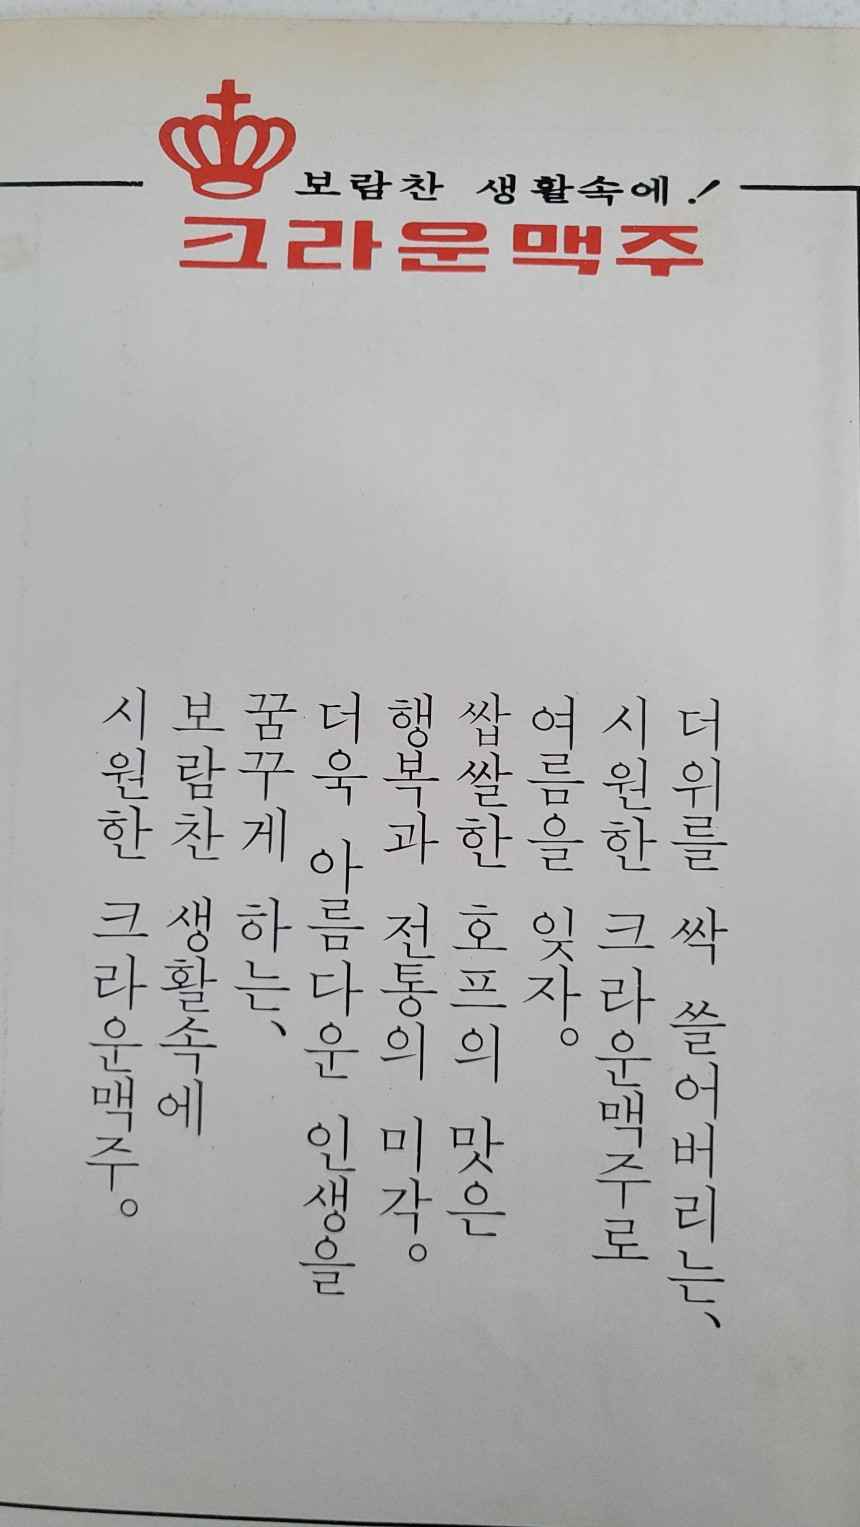 보람찬 생활속에!
크라운맥주
더위를 싹 쓸어버리는、
시원한 크라운맥주로
여름을 잊자。
쌉쌀한 호프의 맛은
행복과 전통의 미각。
더욱 아름다운 인생을
꿈꾸게 하는、
보람찬 생활속에
시원한 크라운맥주。